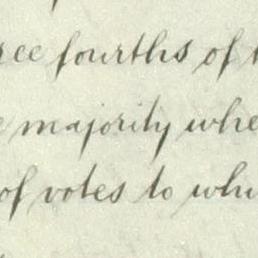 ree fourths of
e majority whe
of votes to whi